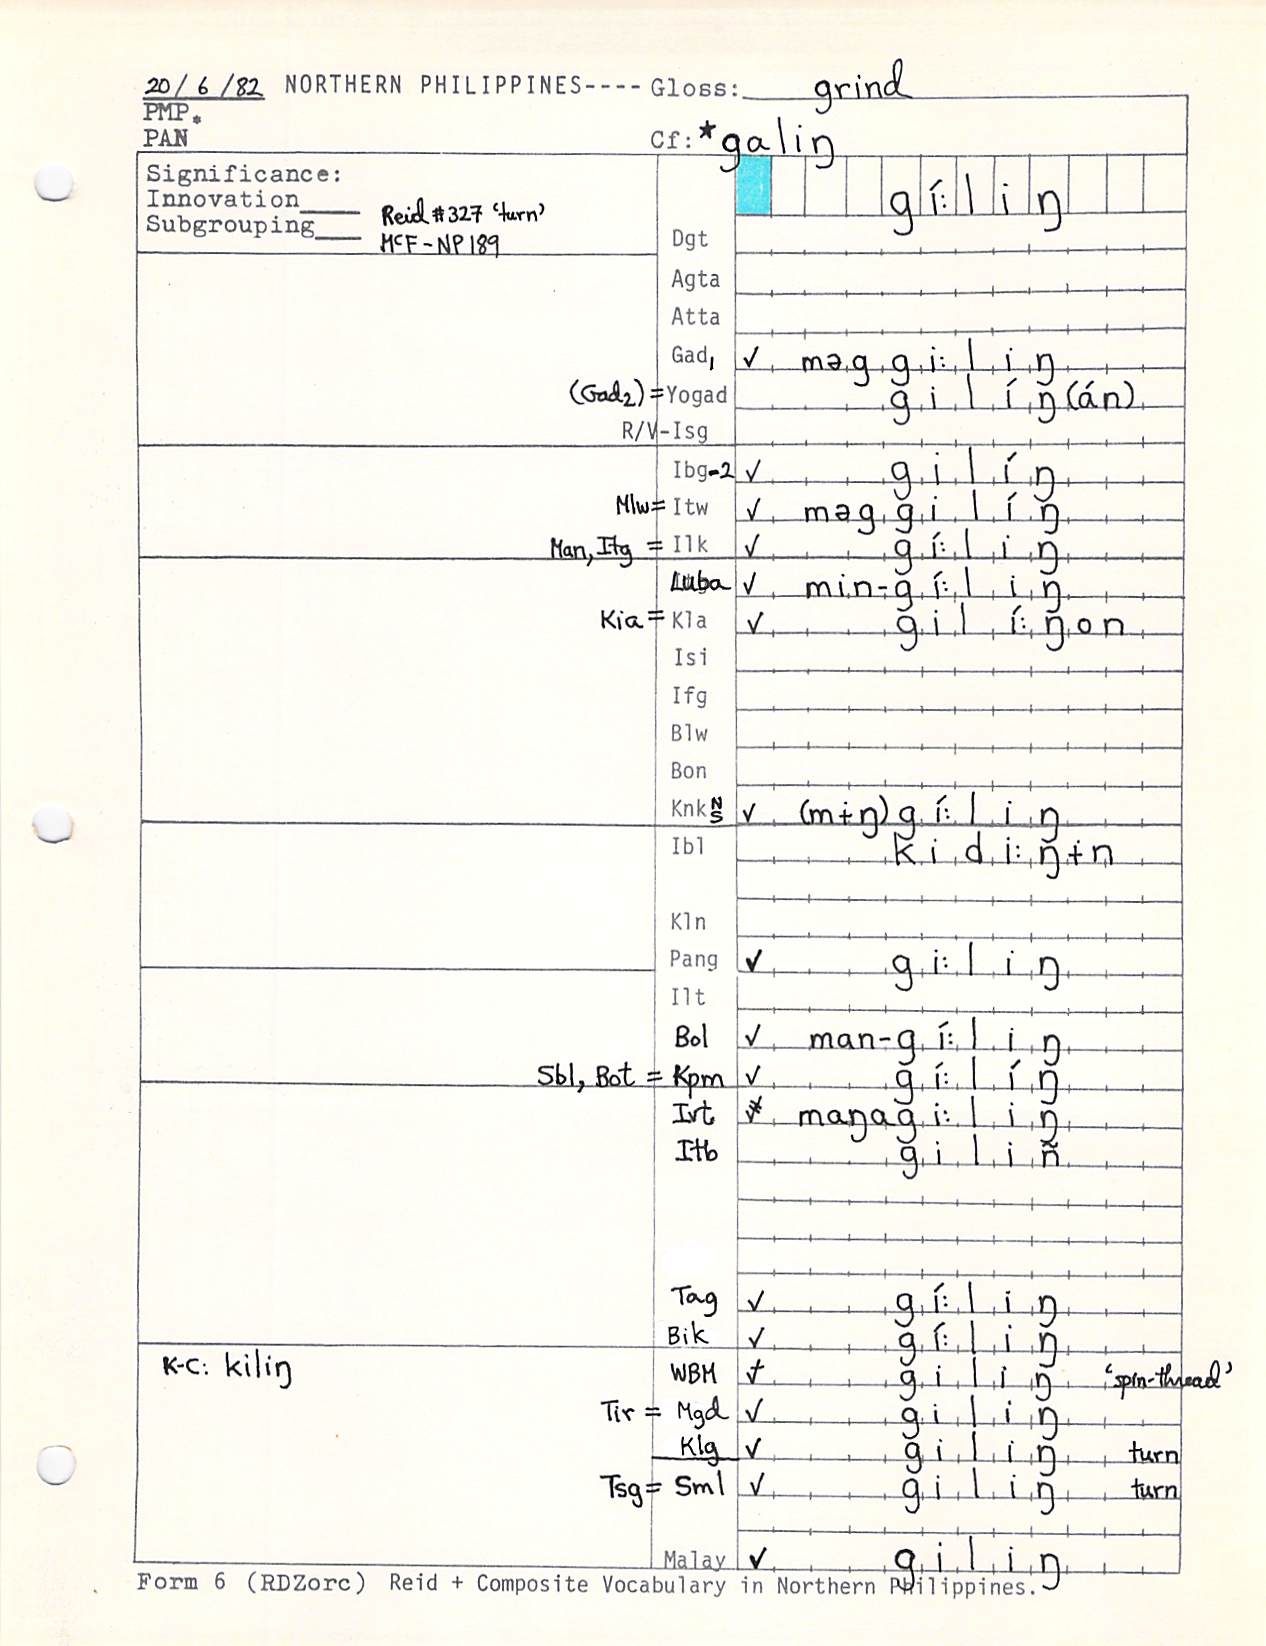 20/6/82 NORTHERN PHILIPPINES---- Gloss: grind
PMP.
PAN Cf: *galiŋ
Significance:
Innovation____ gí:liŋ
Subgrouping___ Reid #327 ‘turn’
McF-NP189
Dgt
Agta
Atta
Gad₁ ✓ məggi:liŋ
(Gad₂) = Yogad gilíŋ(án)
R/V-Isg
Ibg-2 ✓ gilíŋ
Mlw = Itw ✓ məggilíŋ
Man, Itg = Ilk ✓ gí:liŋ
Luba ✓ min-gí:liŋ
Kia = Kla ✓ gilí:ŋon
Isi
Ifg
Blw
Bon
Knk N S ✓ (mɨŋ)gí:liŋ
Ibl kidi:ŋɨn
Kln
Pang ✓ gi:liŋ
Ilt
Bol ✓ man-gí:liŋ
Sbl, Bot = Kpm ✓ gí:líŋ
Ivt maŋagi:liŋ
Itb giliñ
Tag ✓ gí:liŋ
Bik ✓ gí:liŋ
K-C: kiliŋ
WBM giliŋ ‘spin-thread’
Tir = Mgd ✓ giliŋ
Klg ✓ giliŋ turn
Tsg = Sml ✓ giliŋ turn
Malay ✓ giliŋ
Form 6 (RDZorc) Reid + Composite Vocabulary in Northern Philippines.